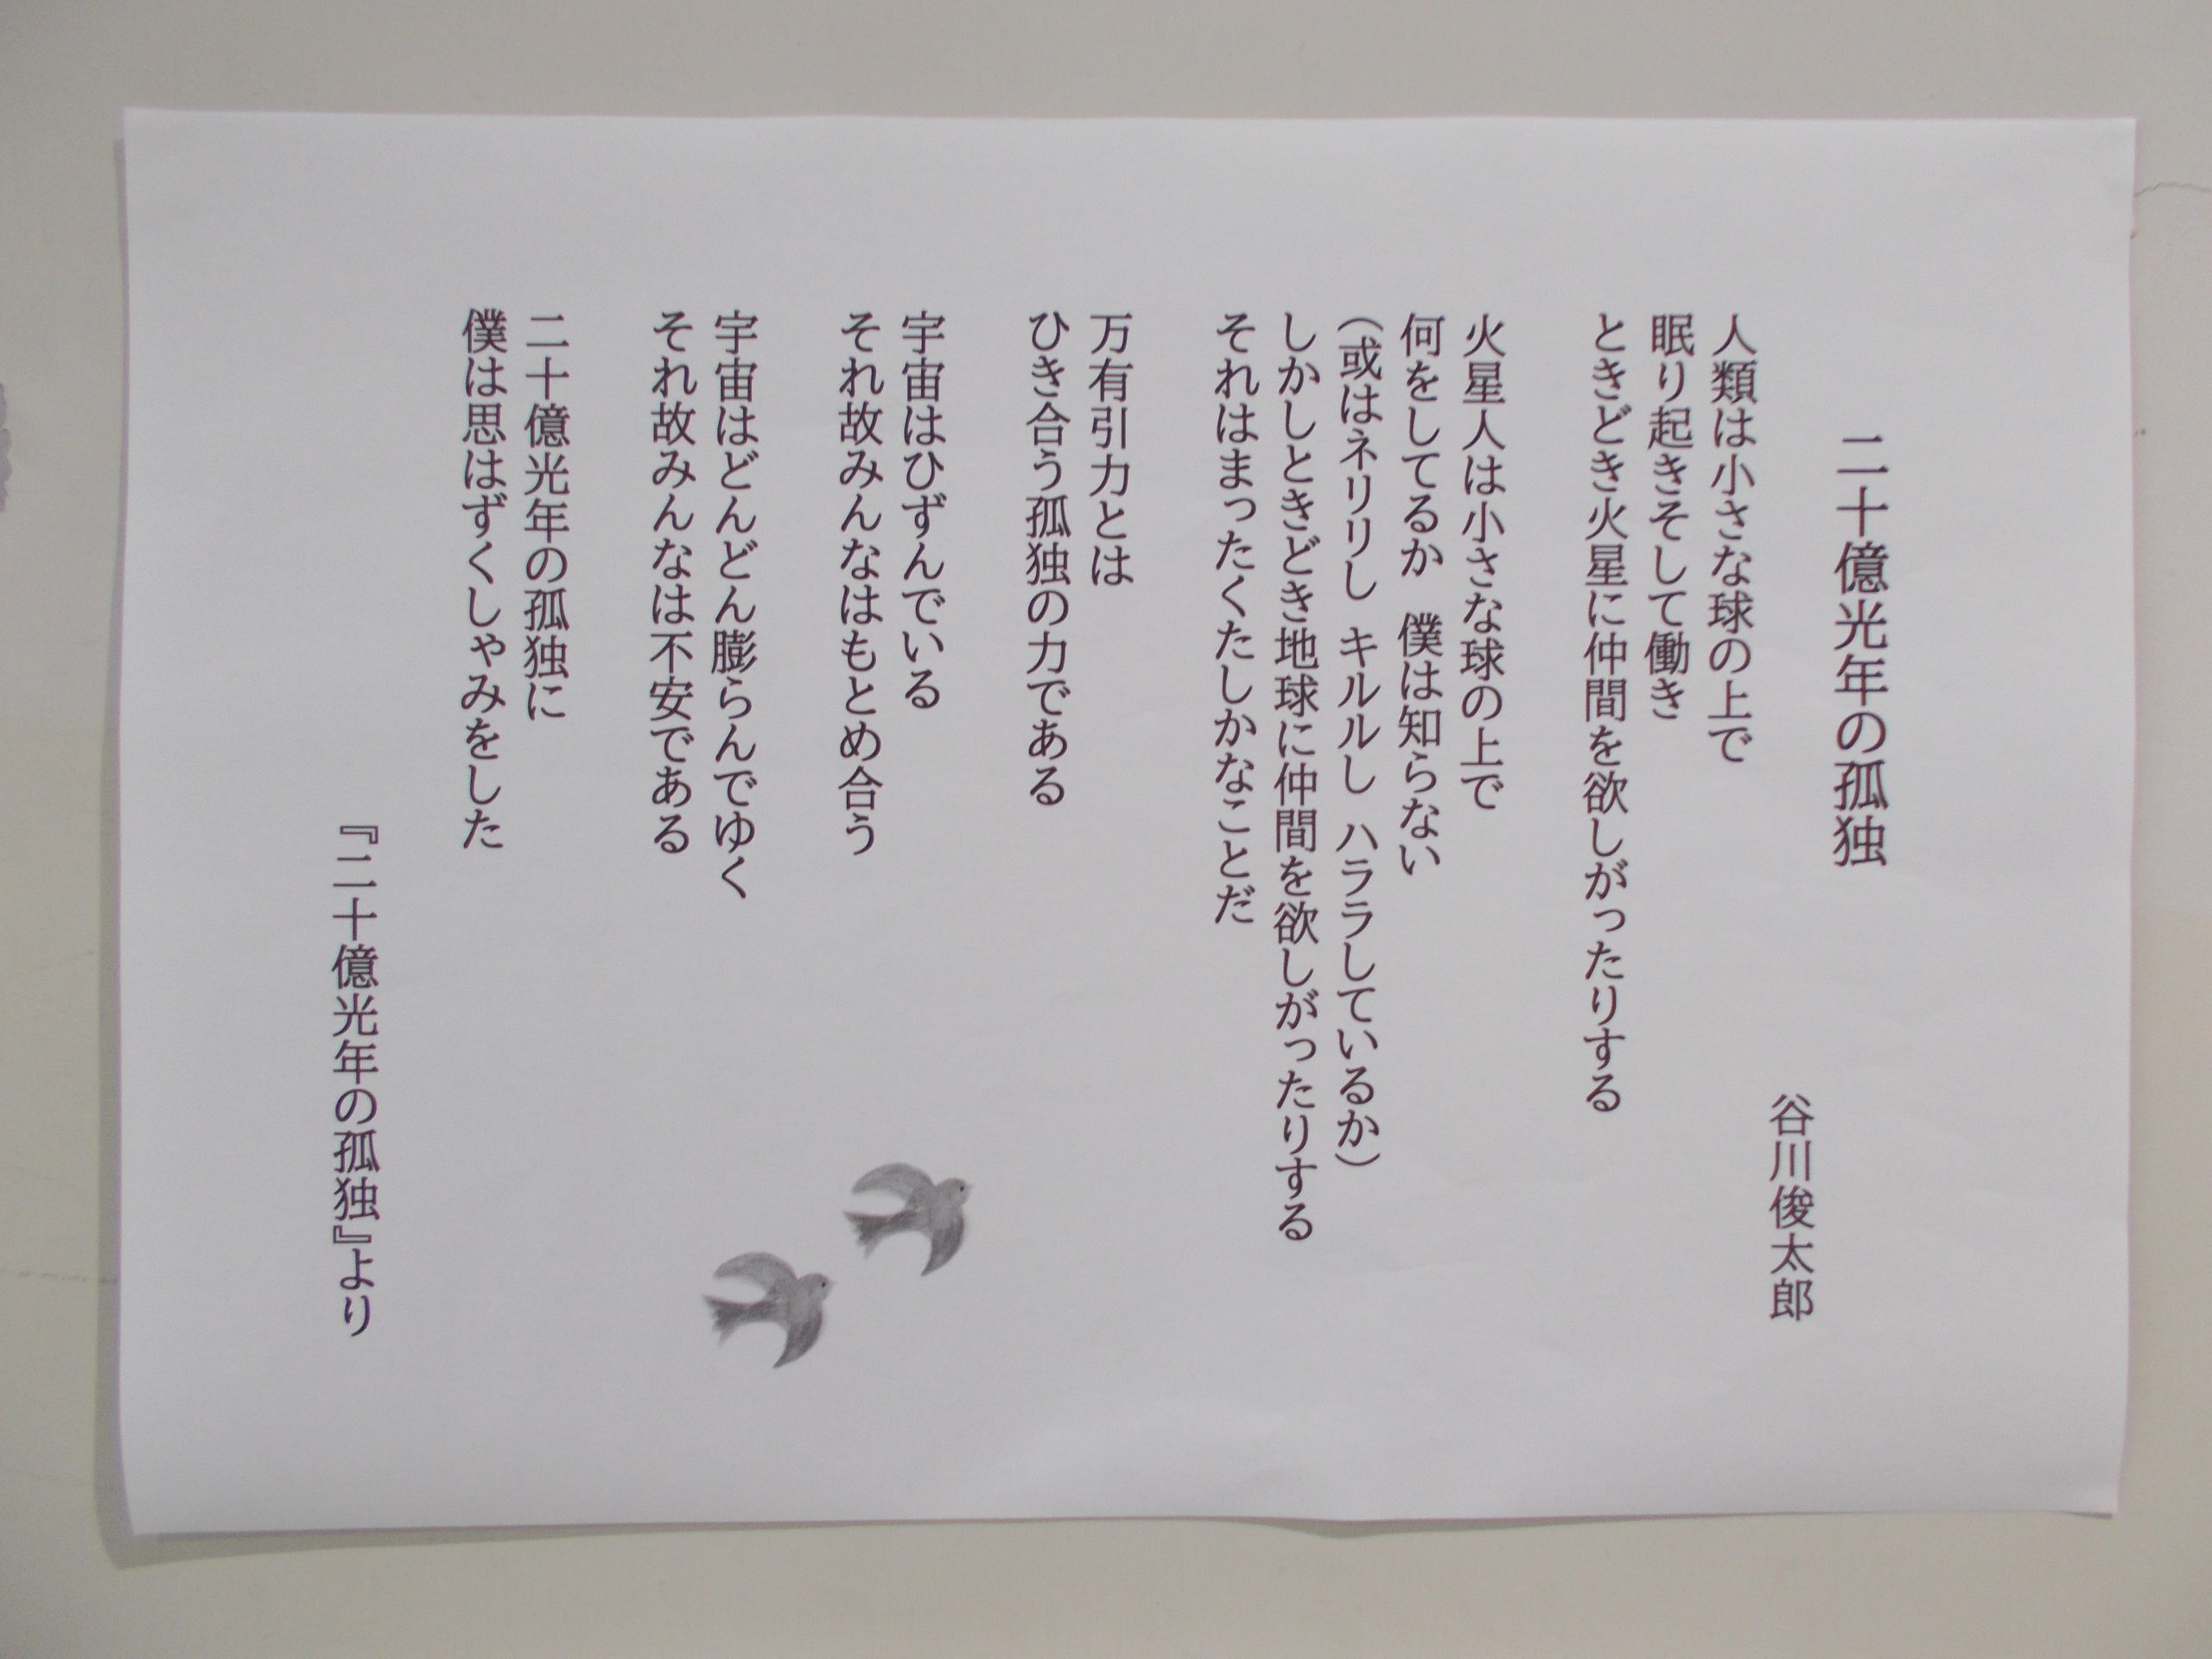 二十億光年の孤独
谷川俊太郎
人類は小さな球の上で
眠り起きそして働き
ときどき火星に仲間を欲しがったりする
火星人は小さな球の上で
何をしてるか　僕は知らない
（或はネリリし キルルし ハララしているか）
しかしときどき地球に仲間を欲しがったりする
それはまったくたしかなことだ
万有引力とは
ひき合う孤独の力である
宇宙はひずんでいる
それ故みんなはもとめ合う
宇宙はどんどん膨らんでゆく
それ故みんなは不安である
二十億光年の孤独に
僕は思はずくしゃみをした
『二十億光年の孤独』より